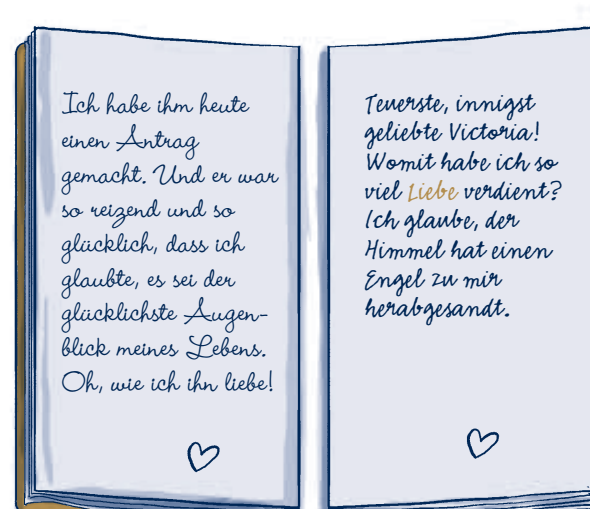 Ich habe ihm heute
einen Antrag
gemacht. Und er war
so reizend und so
glücklich, dass ich
glaubte, es sei der
glücklichste Augen-
blick meines Lebens.
Oh, wie ich ihn liebe!
Teuerste, innigst
geliebte Victoria!
Womit habe ich so
viel Liebe verdient?
Ich glaube, der
Himmel hat einen
Engel zu mir
herabgesandt.